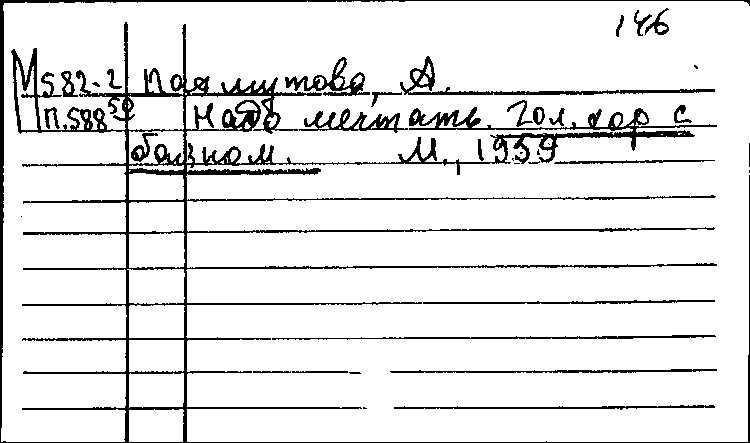 146
М582-2 Пахмутова, А.
П.588⁵⁹ Надо мечтать. Гол. хор с
баяном. М., 1959